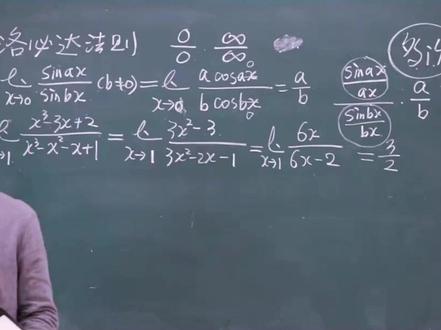 洛必达法则) 0/0 ∞/∞
lim x→0 sinax/sinbx (b≠0) = lim x→0 a cosax/b cosbx = a/b (sinax/ax)/(sinbx/bx) · a/b
x→1 x³-3x+2/x³-x²-x+1 = lim x→1 3x²-3/3x²-2x-1 = lim x→1 6x/6x-2 = 3/2